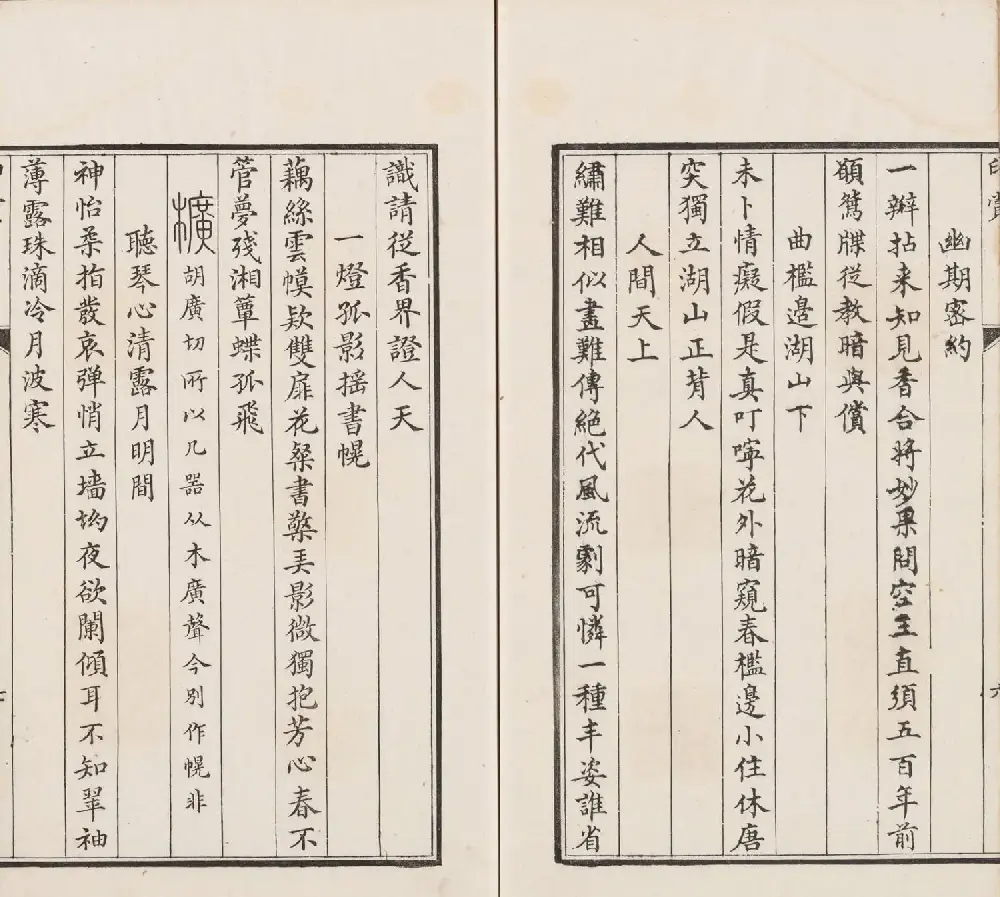 幽期密約
一瓣拈来知見香合將妙果問空王直須五百年前
願篤牒從教暗與償
曲檻邊湖山下
未卜情癡假是真叮嚀花外暗窺春檻邊小住休唐
突獨立湖山正背人
人間天上
繡難相似畫難傳絕代風流劇可憐一種丰姿誰省
識請從香界證人天
一燈孤影搖書幌
藕絲雲幙欵雙扉花粲書檠弄影微獨抱芳心春不
管夢殘湘簟蝶孤飛
櫎 胡廣切所以几器从木廣聲今別作幌非
聽琴心清露月明間
神怡柔指發哀彈悄立墻坳夜欲闌傾耳不知翠袖
薄露珠滴冷月波寒